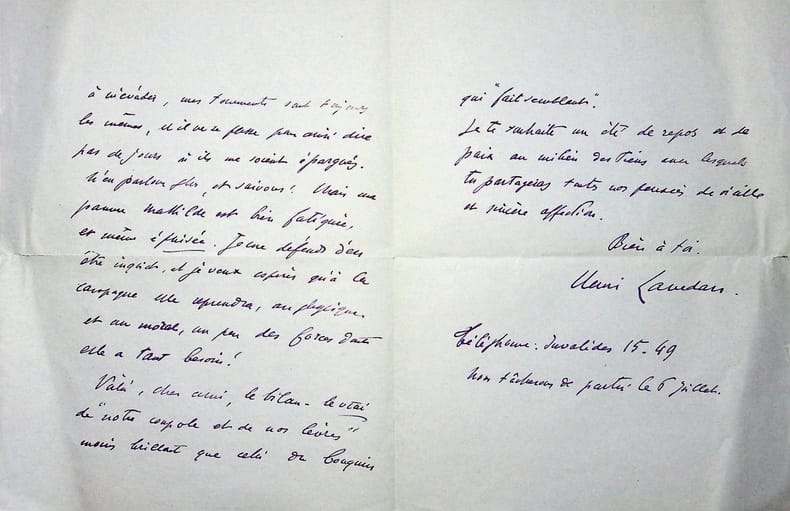 à m'évader, mes tourments sont toujours
les mêmes, et il ne se passe pour ainsi dire
pas de jours où ils me soient épargnés.
N'en parlons plus, et suivons! Mais ma
pauvre Mathilde est bien fatiguée,
et même épuisée. Je me défends d'en
être inquiet, et je veux espérer qu'à la
campagne elle reprendra, au physique
et au moral, un peu des forces dont
elle a tant besoin!
Voilà, cher ami, le bilan - le vrai
de "notre coupole et de nos lèvres"
moins brillant que celui du bouquin
qui "fait semblant".
Je te souhaite un été de repos et de
paix au milieu des tiens avec lesquels
tu partageras toutes nos pensées de vieille
et sincère affection.
Bien à toi.
Henri Lavedan.
Téléphone: Invalides 15-49
Nous tâcherons de partir le 6 juillet.